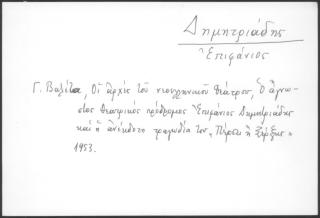 Δημητριάδης
Ἐπιφάνιος
Γ. Βαλέτα, Οἱ ἀρχὲς τοῦ νεοελληνικοῦ θεάτρου, Ὁ ἄγνω-
στος θεατρικὸς πρόδρομος Ἐπιφάνιος Δημητριάδης
καὶ ἡ ἀνέκδοτη τραγωδία του "Πέρσαι ἢ Ξέρξης"
1953.